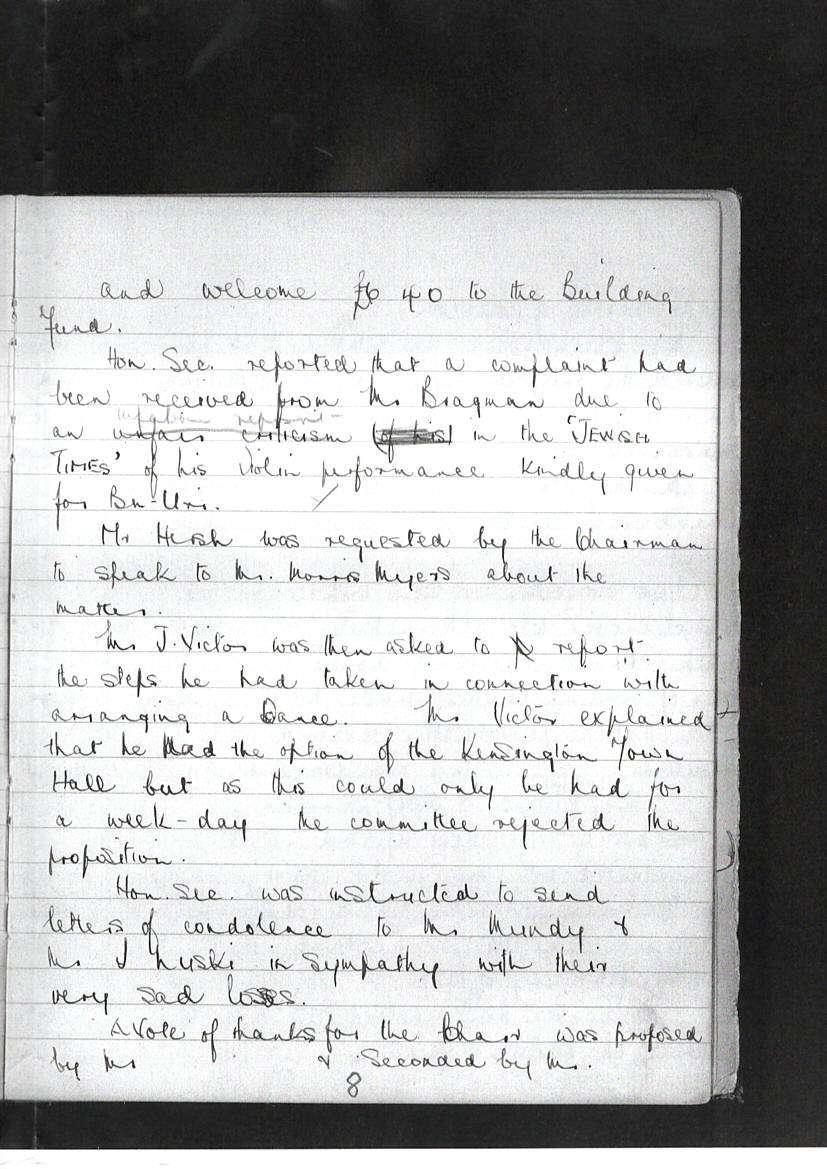 and welcome £6 40 to the Building
Fund.
Hon. Sec. reported that a complaint had
been received from Mr Bragman due to
report
an unfair criticism (of his) in the 'JEWISH
TIMES' of his violin performance kindly given
for Bn-Uri.
Mr Hersh was requested by the Chairman
to speak to Mr. Morris Myers about the
matter.
Mr J. Victor was then asked to report
the steps he had taken in connection with
arranging a Dance. Mr Victor explained
that he had the option of the Kensington Town
Hall but as this could only be had for
a week-day the committee rejected the
proposition.
Hon. Sec. was instructed to send
letters of condolence to Mr Mundy &
Mr J Luski in sympathy with their
very sad loss.
A Vote of thanks for the Chair was proposed
by Mr & Seconded by Mr.
8